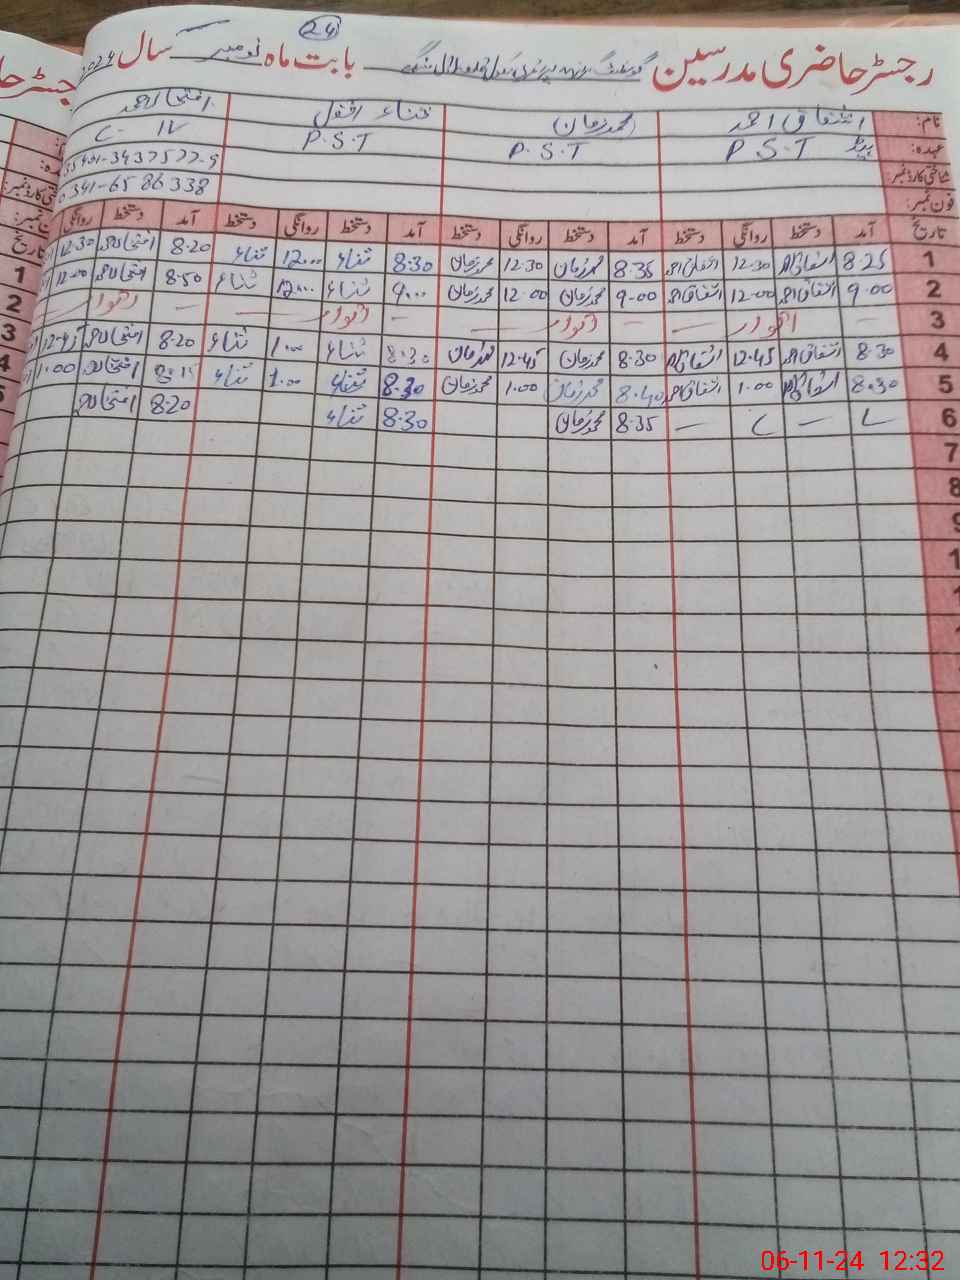 24
رجسٹر حاضری مدرسین گورنمنٹ بابت ماہ نومبر سال 2024
نام: اشفاق احمد محمد زمان ثناء افضل افتخار احمد
عہدہ: ہیڈ P.S.T P.S.T P.S.T C-IV
شناختی کارڈ نمبر:
فون نمبر: 0341-6586338
تاریخ آمد دستخط روانگی دستخط آمد دستخط روانگی دستخط آمد دستخط روانگی دستخط آمد دستخط روانگی
1 8.25 اشفاق احمد 12.30 اشفاق احمد 8.35 محمد زمان 12.30 محمد زمان 8:30 ثناء 12:00 ثناء 8.20 افتخار احمد 12.30
2 9.00 اشفاق احمد 12.00 اشفاق احمد 9.00 محمد زمان 12.00 محمد زمان 9:00 ثناء 12:00 ثناء 8.50 افتخار احمد 12.00
3 — اتوار — — اتوار — — اتوار — — اتوار
4 8.30 اشفاق احمد 12.45 اشفاق احمد 8.30 محمد زمان 12.45 محمد زمان 8:30 ثناء 1:00 ثناء 8.20 افتخار احمد 12.45
5 8.30 اشفاق احمد 1.00 اشفاق احمد 8.40 محمد زمان 1.00 محمد زمان 8.30 ثناء 1.00 ثناء 8.15 افتخار احمد 1.00
6 L — L — 8.35 محمد زمان 8.30 ثناء 8.20 افتخار احمد
7
8
9
1
1
1
06-11-24 12:32